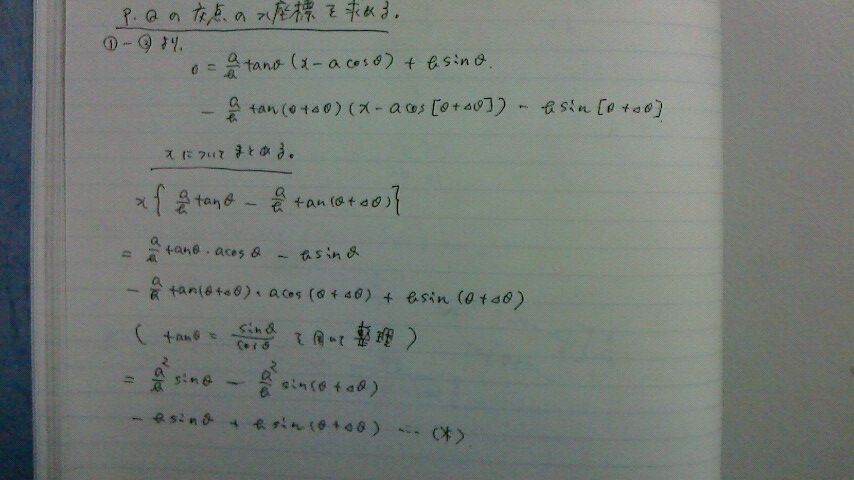 P.Qの交点のx座標を求める。
①-②より、
0 = a/b tanθ (x - a cosθ) + b sinθ.
- a/b tan(θ+Δθ) (x - a cos[θ+Δθ]) - b sin[θ+Δθ]
xについてまとめる。
x{ a/b tanθ - a/b tan(θ+Δθ)}
= a/b tanθ・a cosθ - b sinθ
- a/b tan(θ+Δθ)・a cos(θ+Δθ) + b sin(θ+Δθ)
( tanθ = sinθ/cosθ を用いて整理 )
= a²/b sinθ - a²/b sin(θ+Δθ)
- b sinθ + b sin(θ+Δθ) … (*)